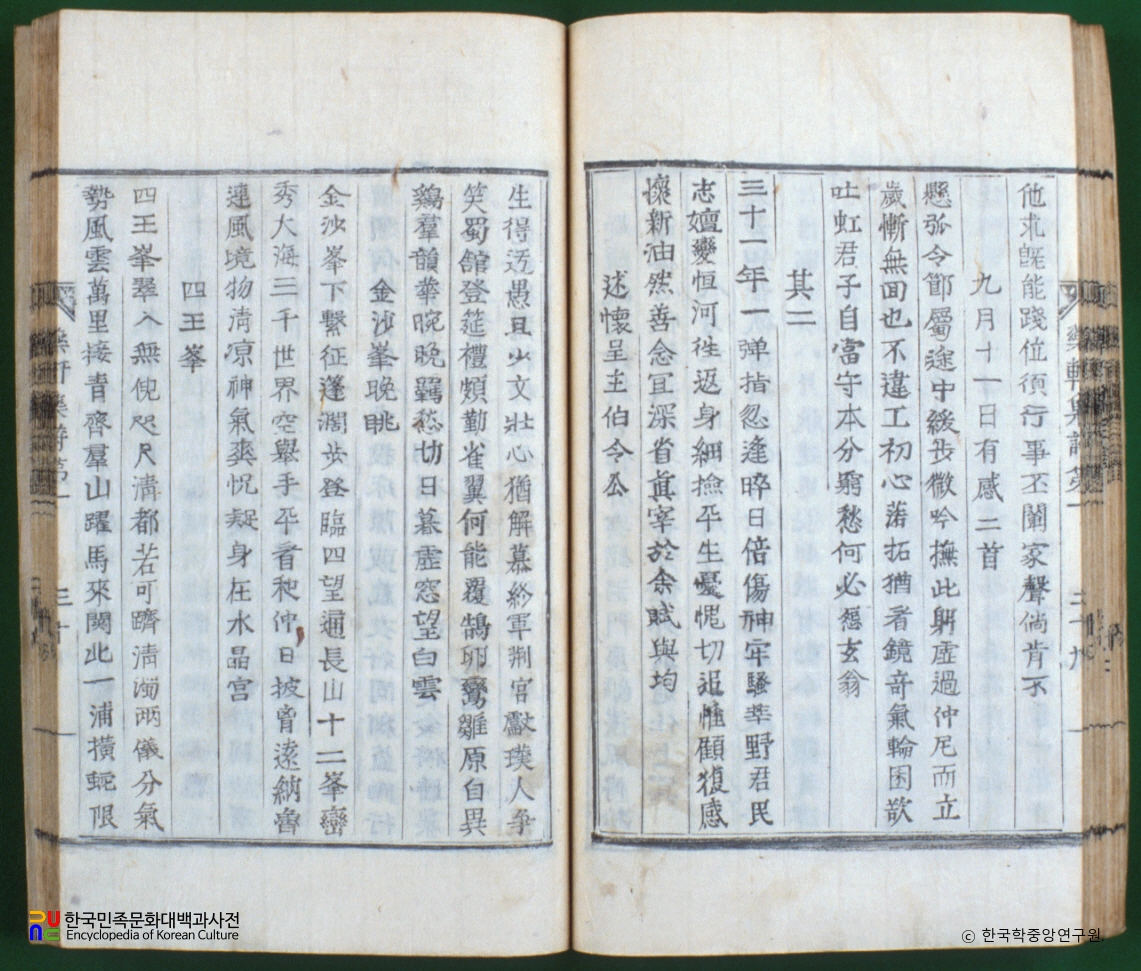 他求旣能踐位須行事丕闡家聲倘肯不
九月十一日有感二首
懸弧令節屬途中緩步微吟撫此躬虛過仲尼而立
歲慚無回也不違工初心落拓猶看鏡奇氣輪囷欲
吐虹君子自當守本分窮愁何必怨玄翁
其二
三十一年一弹指忽逢晬日倍傷神牢騷莘野君民
志嬗變恒河徃返身細撿平生憂愧切追惟顧復感
懷新油然善念宜深省眞宰於余賦與均
述懷呈主伯令公
生得迃愚且少文壯心猶解慕終軍荆官獻璞人爭
笑蜀舘登筵禮頗勤雀翼何能覆鵠卵鸞雛原自異
鷄羣韻華晼晚羈愁切日暮虛窓望白雲
金沙峯晚眺
金沙峯下繫征蓬濶步登臨四望通長山十二峯巒
秀大海三千世界空擧手平看秧仲日披胷遠納魯
連風境物淸凉神氣爽怳疑身在水晶宮
四王峯
四王峯翠入無倪咫尺淸都若可躋淸濁兩儀分氣
勢風雲萬里接靑齊羣山躍馬來関此一浦橫蛇限
三十
二十九
한국민족문화대백과사전
Encyclopedia of Korean Culture
© 한국학중앙연구원